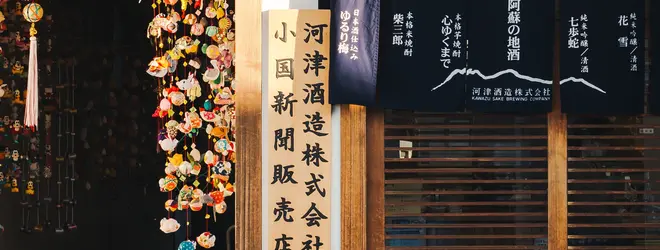 河津酒造株式会社
小国新聞販売店
花雪
純米吟醸/清酒
七歩蛇
純米吟醸/清酒
阿蘇の地酒
心ゆくまで
本格芋焼酎
柴三郎
本格米焼酎
ゆるり梅
日本酒仕込み
河津酒造株式会社
KAWAZU SAKE BREWING COMPANY